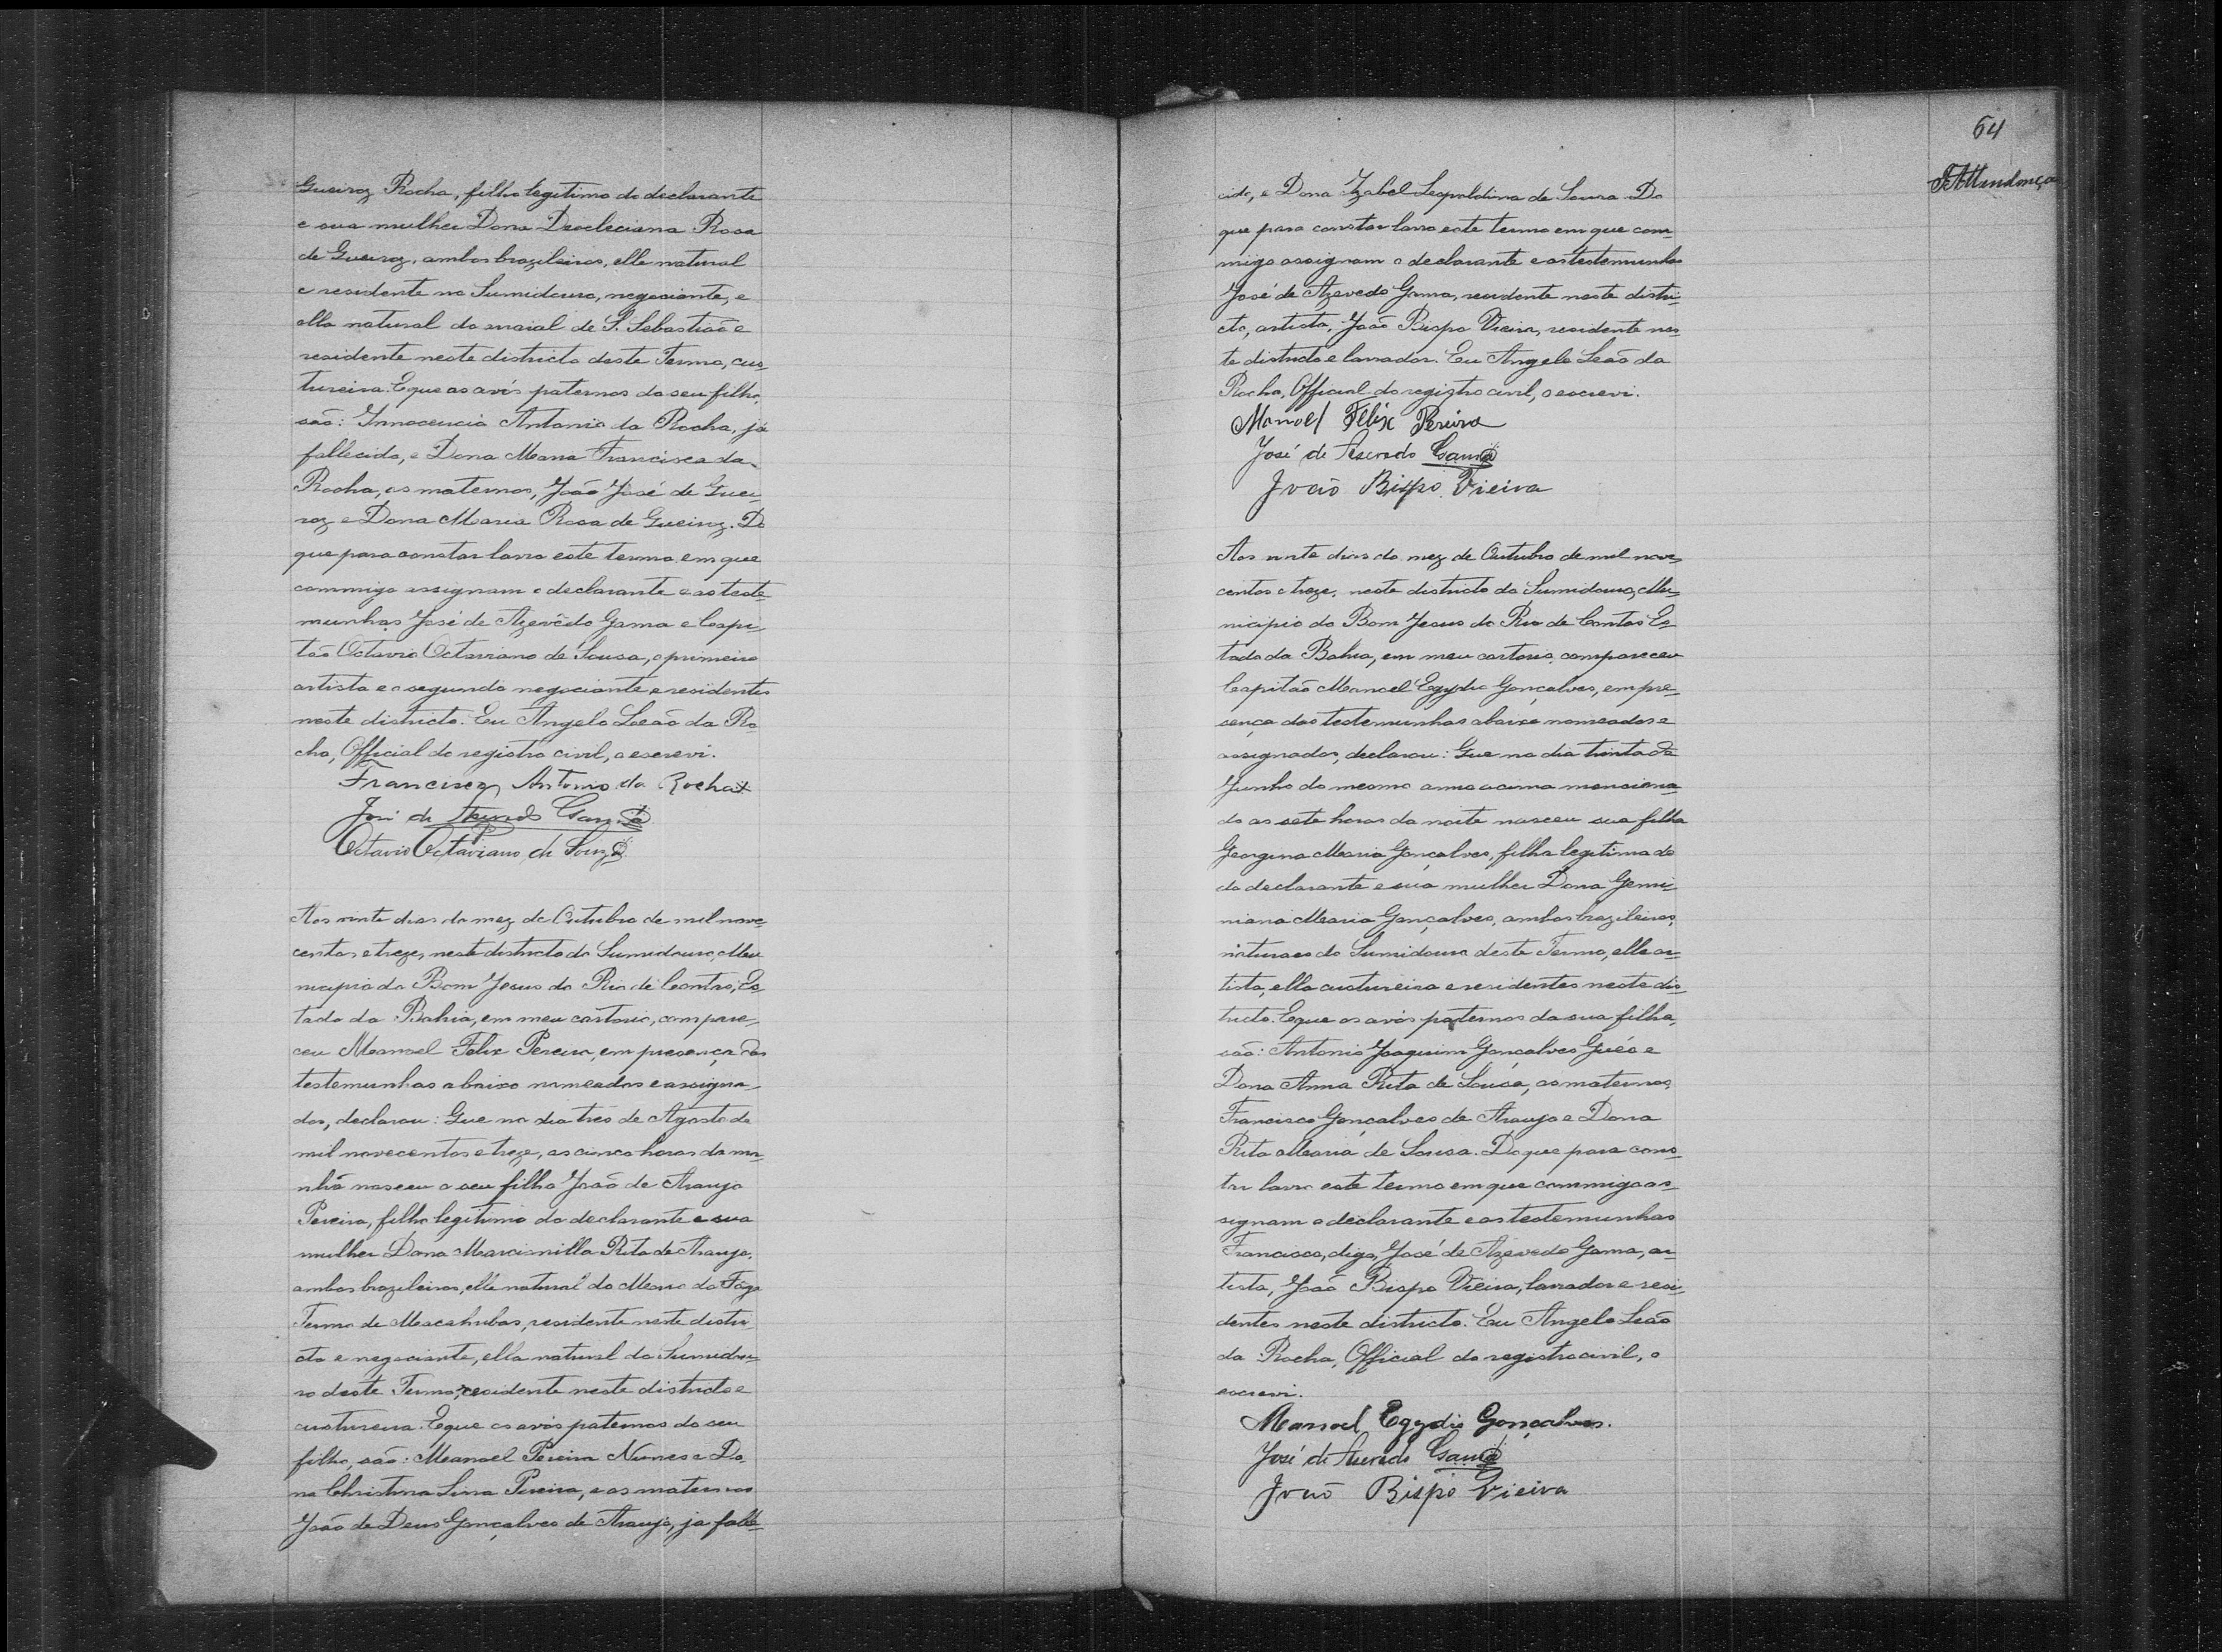 Gueiroz Rocha, filho legitimo do declarante
e sua mulher Dona Deocleciana Rosa
de Gueiroz, ambos brazileiros, elle natural
e residente no Sumidouro, negociante, e
ella natural do arraial de S. Sebastião e
residente neste districto deste Termo, cus-
tureira. E que os avós paternos do seu filho,
são: Innocencio Antonio da Rocha, já
fallecido, e Dona Maria Francisca da
Rocha, os maternos, João José de Guei-
roz e Dona Maria Rosa de Gueiroz. Do
que para constar lavro este termo em que
commigo assignam o declarante e as teste-
munhas José de Azevêdo Gama e Capi-
tão Octavio Octaviano de Sousa, o primeiro
artista e o segundo negociante e residentes
neste districto. Eu Angelo Leão da Ro-
cha, Official do registro civil, o escrevi.
Francisco Antonio da Rocha
José de Asevedo Gama
Octavio Octaviano de Souza
Aos vinte dias do mez de Outubro de mil nove-
centos e treze, neste districto do Sumidouro, Mu-
nicipio do Bom Jesus do Rio de Contas, Es-
tado da Bahia, em meu cartorio, compare-
ceu Manoel Felix Pereira, em presença das
testemunhas abaixo nomeadas e assigna-
das, declarou: Que no dia tres de Agosto de
mil novecentos e treze, as cinco horas da ma-
nhã nasceu o seu filho João de Araujo
Pereira, filho legitimo do declarante e sua
mulher Dona Marcianilla Rita de Araujo,
ambos brazileiros, elle natural do Morro do Fogo
Termo de Macahubas, residente neste distri-
cto e negociante, ella natural do Sumidou-
ro deste Termo, residente neste districto e
custureira. E que os avós paternos do seu
filho, são: Manoel Pereira Nunes e Do-
na Christina Pereira, e os maternos
João de Deus Gonçalves de Araujo, ja falle-
64
cido, e Dona Izabel Leopoldina de Sousa. Do
que para constar lavro este termo em que com-
migo assignam o declarante e as testemunhas
José de Azevedo Gama, residente neste distri-
cto, artista, João Bispo Vieira, residente nes-
te districto e lavrador. Eu Angelo Leão da
Rocha, Official do registro civil, o escrevi.
Manoel Felix Pereira
José de Asevedo Gama
João Bispo Vieira
Aos vinte dias do mez de Outubro de mil nove-
centos e treze, neste districto do Sumidouro, Mu-
nicipio do Bom Jesus do Rio de Contas Es-
tado da Bahia, em meu cartorio, compareceu
Capitão Manoel Egydio Gonçalves, em pre-
sença das testemunhas abaixo nomeadas e
assignadas, declarou: Que no dia trinta de
Junho do mesmo anno acima menciona-
do as sete horas da noite nasceu sua filha
Georgina Maria Gonçalves, filha legitima do
do declarante e sua mulher Dona Gemi-
niana Maria Gonçalves, ambos brazileiros,
naturaes do Sumidouro deste Termo, elle ar-
tista, ella custureira e residentes neste dis-
tricto. E que os avós paternos da sua filha,
são: Antonio Joaquim Gonçalves e
Dona Anna Rita de Sousa, os maternos,
Francisco Gonçalves de Araujo e Dona
Rita Maria de Sousa. Do que para cons-
tar lavro este termo em que commigo as-
signam o declarante e as testemunhas
Francisco, digo, José de Azevedo Gama, ar-
tista, João Bispo Vieira, lavrador e resi-
dentes neste districto. Eu Angelo Leão
da Rocha, Official do registro civil, o
escrevi.
Manoel Egydio Gonçalves.
José de Asevedo Gama
João Bispo Vieira